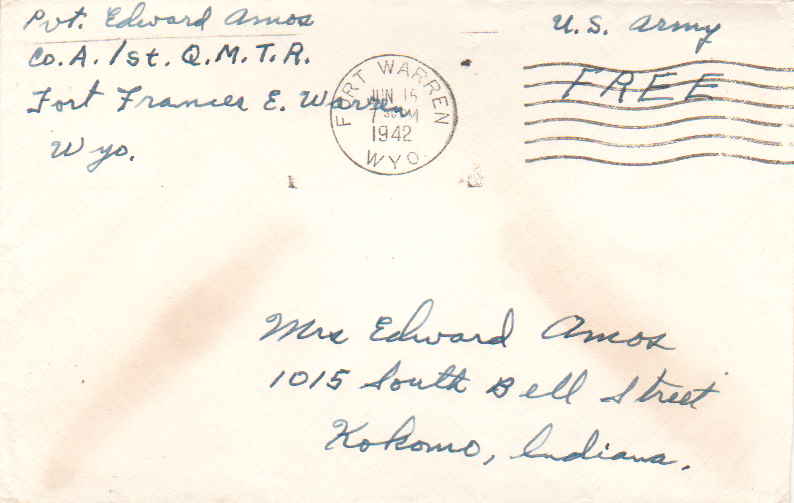 Pvt. Edward Amos
Co. A. 1st. Q.M.T.R.
Fort Frances E. Warren
Wyo.
U.S. Army
FREE
FORT WARREN
JUN 15
1942
WYO.
Mrs Edward Amos
1015 South Bell Street
Kokomo, Indiana.